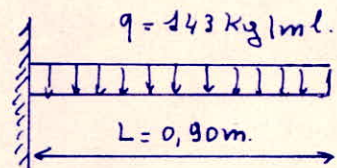 q = 143 kg/ml.
L = 0,90m.